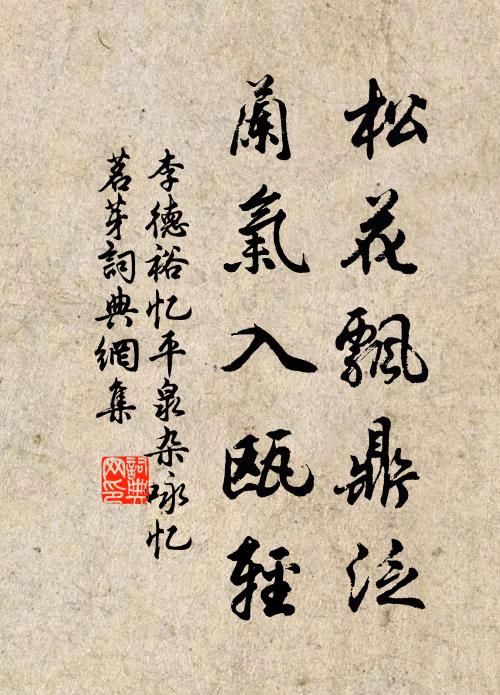 松花飘鼎泛
蘭氣入甌輕
李德裕忆平泉杂咏忆
茗芽詞典網集
詞典網印